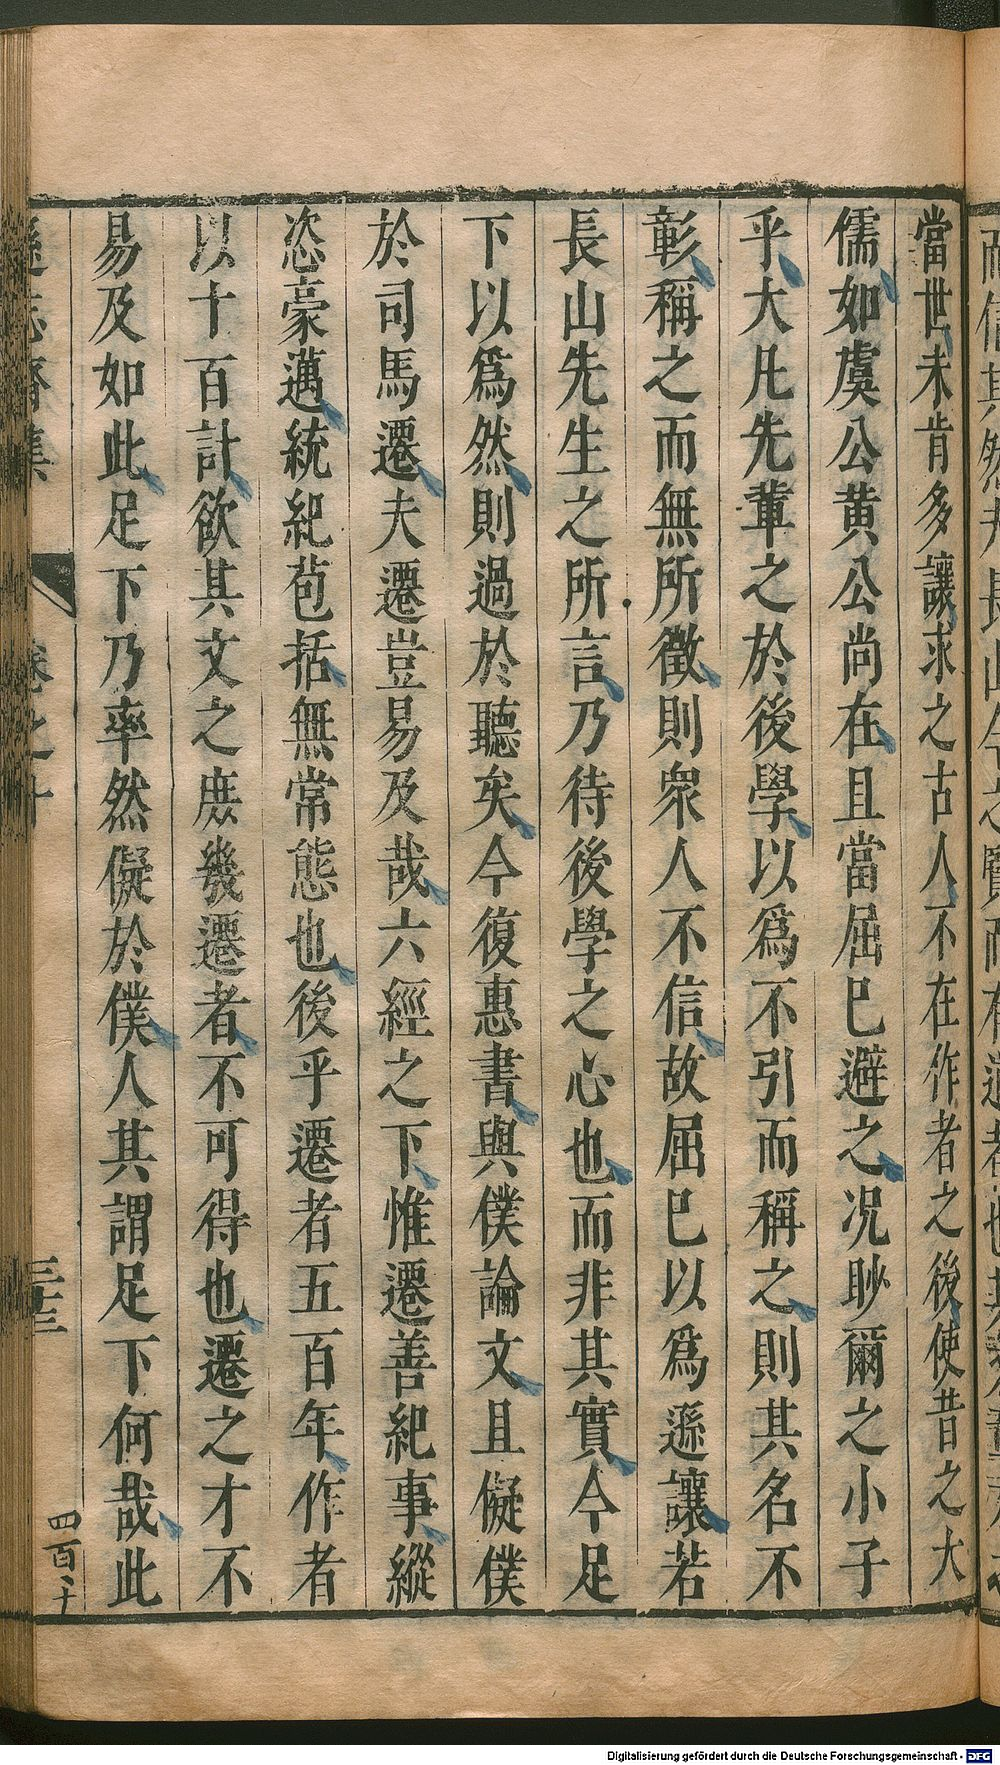 當世未肯多讓求之古人不在作者之後使昔之大
儒如虞公黄公尚在且當屈巳避之况眇爾之小子
乎大凡先輩之於後學以爲不引而稱之則其名不
彰稱之而無所徵則衆人不信故屈巳以爲遜讓若
長山先生之所言乃待後學之心也而非其實今足
下以爲然則過於聽矣今復惠書與僕論文且儗僕
於司馬遷夫遷豈易及哉六經之下惟遷善紀事縱
恣豪邁統紀苞括無常態也後乎遷者五百年作者
以十百計欲其文之庶幾遷者不可得也遷之才不
易及如此足下乃率然儗於僕人其謂足下何哉此
遜志齋集
卷之十
三十三
四百十
Digitalisierung gefördert durch die Deutsche Forschungsgemeinschaft - DFG